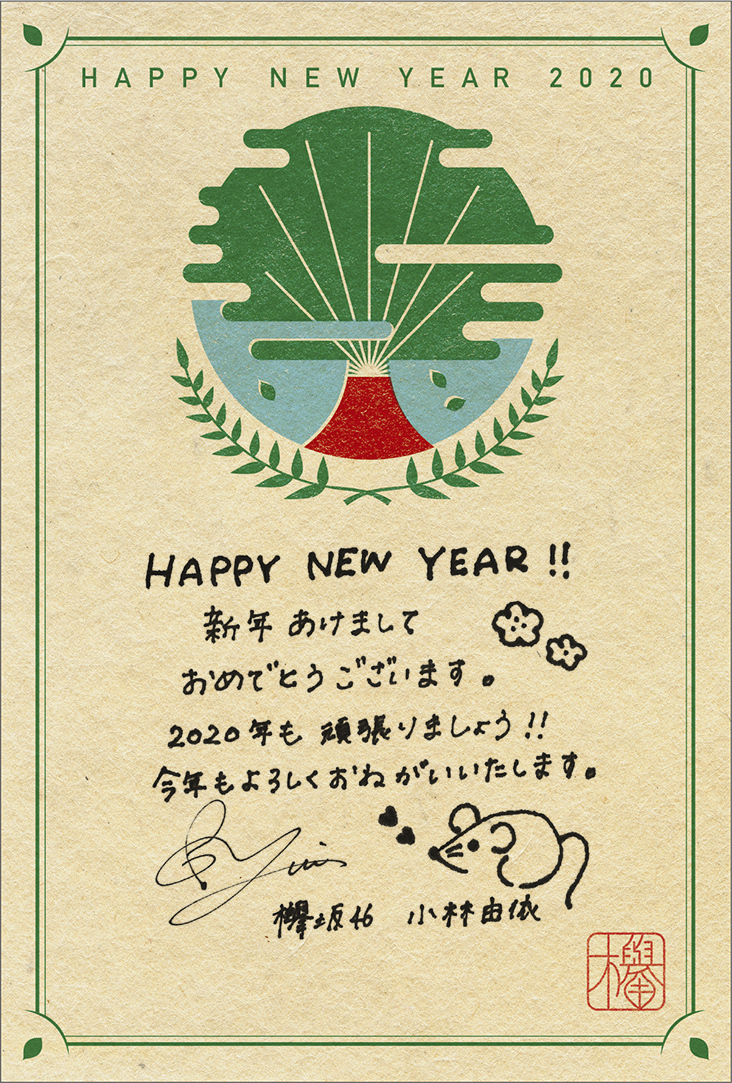 HAPPY NEW YEAR 2020
HAPPY NEW YEAR!!
新年 あけまして
おめでとうございます。
2020年も 頑張りましょう!!
今年もよろしくおねがいいたします。
欅坂46 小林由依
欅